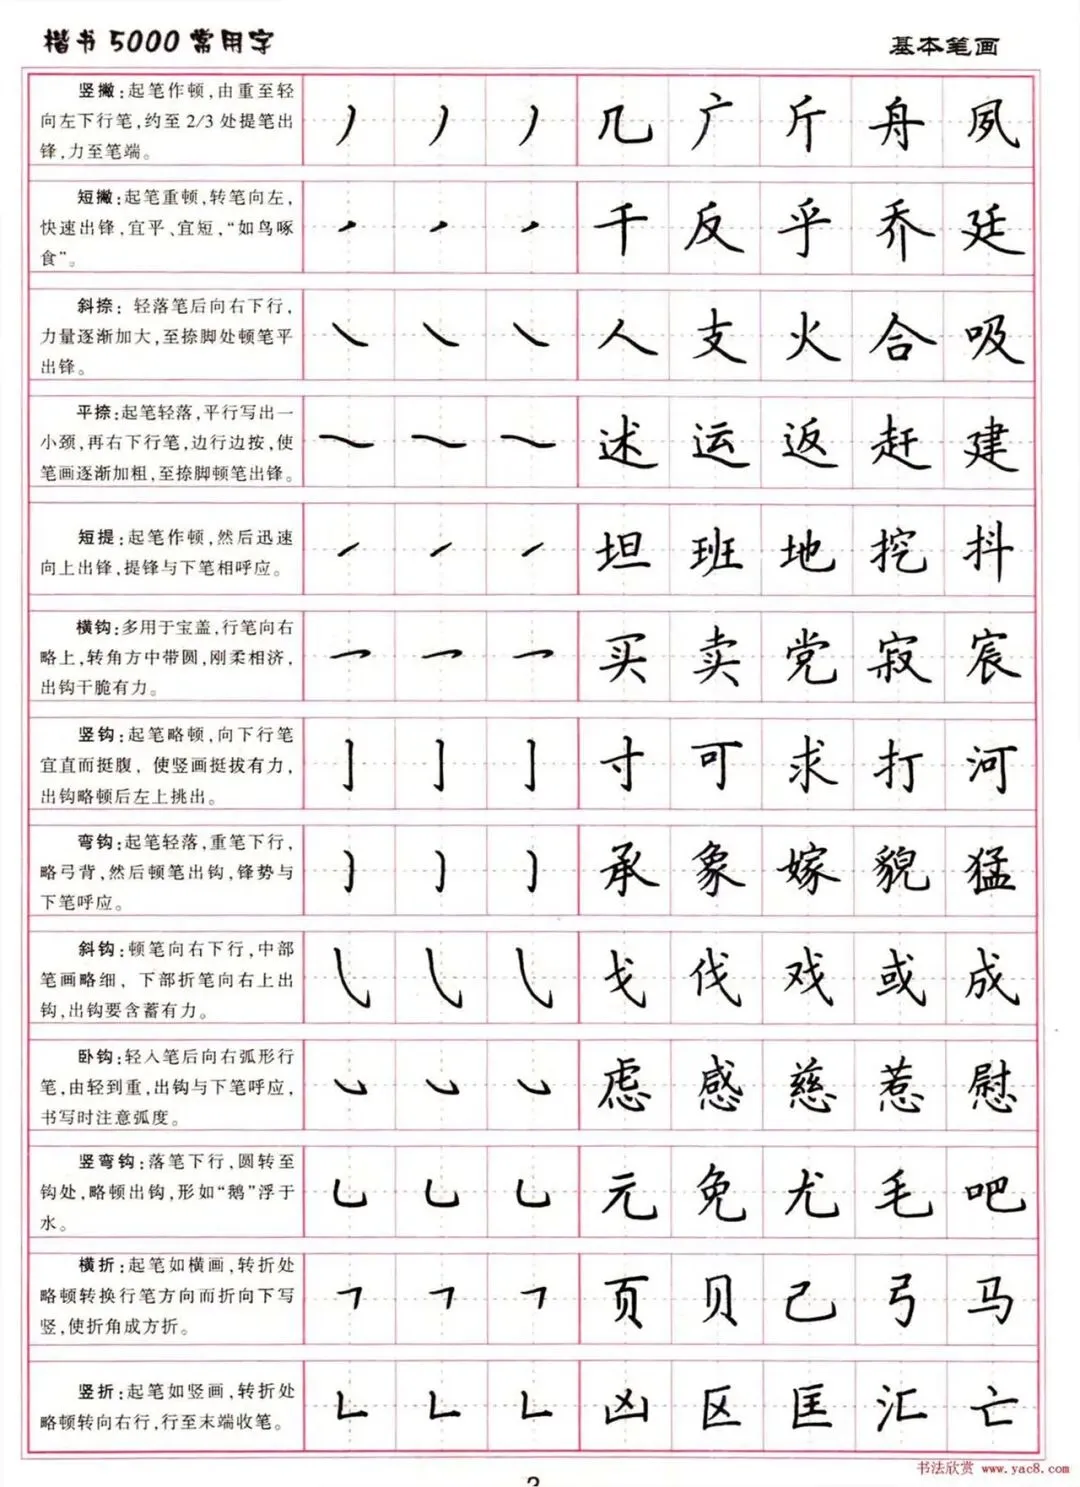 楷书5000常用字
基本笔画
竖撇:起笔作顿,由重至轻
向左下行笔,约至2/3处提笔出
锋,力至笔端。
丿 丿 丿 几 广 斤 舟 夙
短撇:起笔重顿,转笔向左,
快速出锋,宜平、宜短,“如鸟啄
食”。
千 反 乎 乔 廷
斜捺: 轻落笔后向右下行,
力量逐渐加大,至捺脚处顿笔平
出锋。
㇏ ㇏ ㇏ 人 支 火 合 吸
平捺:起笔轻落,平行写出一
小颈,再右下行笔,边行边按,使
笔画逐渐加粗,至捺脚顿笔出锋。
述 运 返 赶 建
短提:起笔作顿,然后迅速
向上出锋,提锋与下笔相呼应。
㇀ ㇀ ㇀ 坦 班 地 挖 抖
横钩:多用于宝盖,行笔向右
略上,转角方中带圆,刚柔相济,
出钩干脆有力。
㇖ ㇖ ㇖ 买 卖 党 寂 宸
竖钩:起笔略顿,向下行笔
宜直而挺腹, 使竖画挺拔有力,
出钩略顿后左上挑出。
亅 亅 亅 寸 可 求 打 河
弯钩:起笔轻落,重笔下行,
略弓背,然后顿笔出钩,锋势与
下笔呼应。
㇁ ㇁ ㇁ 承 象 嫁 貌 猛
斜钩:顿笔向右下行,中部
笔画略细, 下部折笔向右上出
钩,出钩要含蓄有力。
㇂ ㇂ ㇂ 戈 伐 戏 或 成
卧钩:轻入笔后向右弧形行
笔,由轻到重,出钩与下笔呼应,
书写时注意弧度。
㇃ ㇃ ㇃ 虑 感 慈 惹 慰
竖弯钩:落笔下行,圆转至
钩处,略顿出钩,形如“鹅”浮于
水。
乚 乚 乚 元 免 尤 毛 吧
横折:起笔如横画,转折处
略顿转换行笔方向而折向下写
竖,使折角成方折。
㇕ ㇕ ㇕ 页 贝 己 弓 马
竖折:起笔如竖画,转折处
略顿转向右行,行至末端收笔。
㇗ ㇗ ㇗ 凶 区 匡 汇 亡
书法欣赏 www.yac8.com